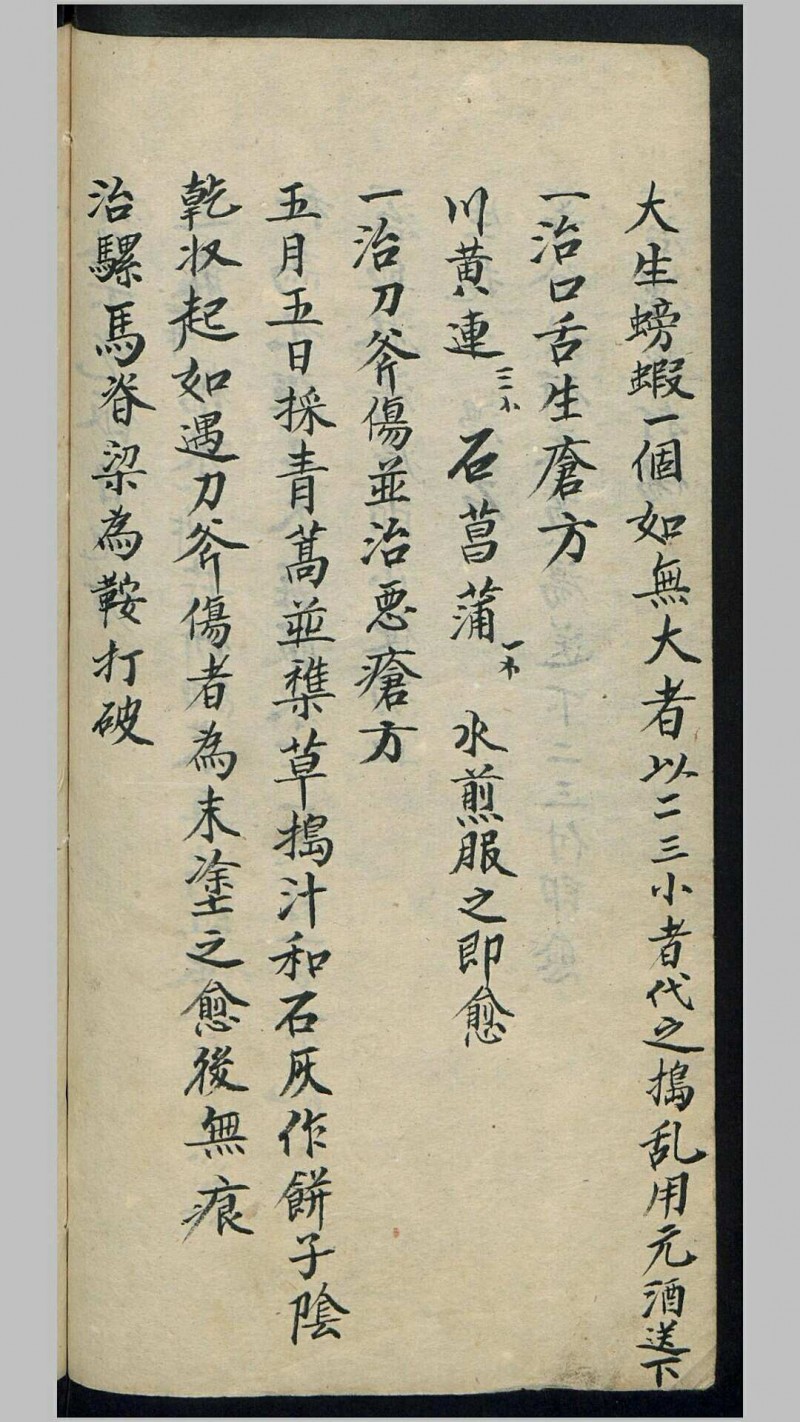 大生螃蝦一個如無大者以二三小者代之搗乱用元酒送下
一治口舌生瘡方
川黃連 石菖蒲 水煎服之即愈
一治刀斧傷並治恶瘡方
五月五日採青蒿並蘗草搗汁和石灰作餅子陰
乾收起如遇刀斧傷者為末塗之愈後無痕
治騾馬脊梁為鞍打破